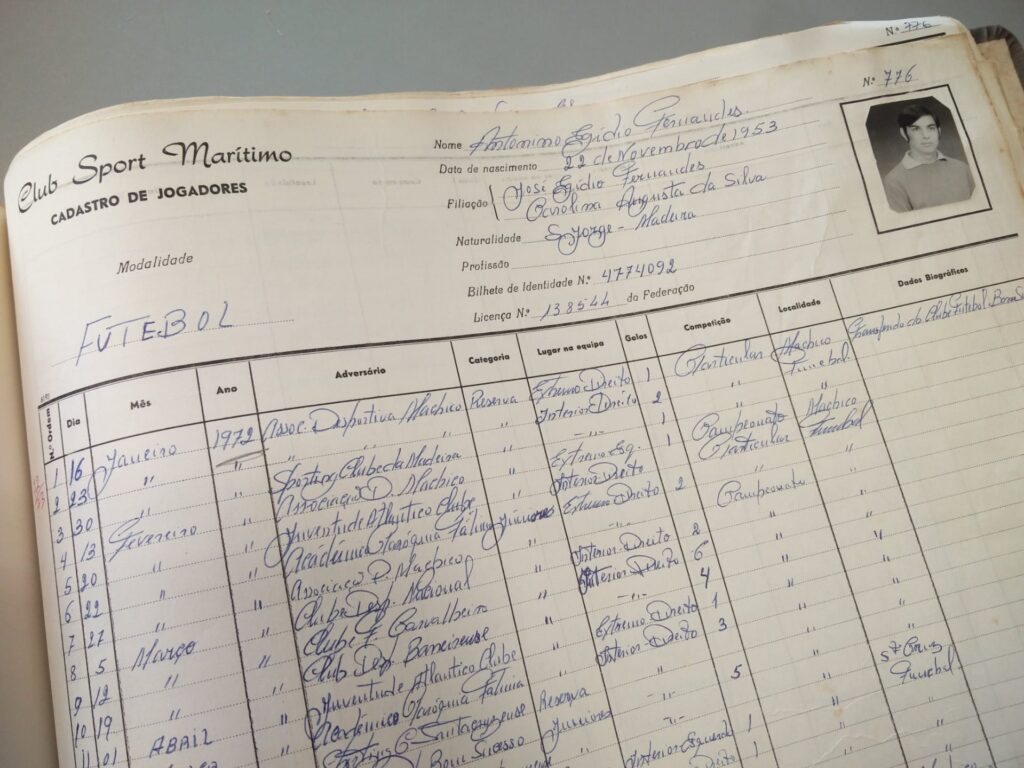 Nº 776
Nº 776
Club Sport Marítimo
CADASTRO DE JOGADORES
Modalidade
FUTEBOL
Nome Antonino Egidio Fernandes.
Data de nascimento 22 de Novembro de 1953
Filiação José Egidio Fernandes
Carolina Augusta da Silva
Naturalidade S. Jorge - Madeira
Profissão
Bilhete de Identidade N.º 4774092
Licença N.º 138544 da Federação
N.º Ordem Dia Mês Ano Adversário Categoria Lugar na equipa Golos Competição Localidade Dados Biográficos
1 16 Janeiro 1972 Assoc. Desportiva Machico Reserva Extremo Direito 1 Particular Machico
2 23 " " " " " Interior Direito 2 " Funchal
3 30 " " Sporting Clube da Madeira
4 13 Fevereiro " Associação D. Machico Extremo Esq. 1 Campeonato Machico
5 20 " " Juventude Atlantico Clube Interior Direito Particular Funchal
6 22 Académica Juniores Extremo Direito 2
7 27 Associaçao D. Machico Campeonato
8 5 Março " Clube Desp. Nacional Interior Direito 2
9 12 " " Clube F. Carvalheiro Interior Direito 6
10 19 " " Club Desp. Barreirense 4
11 01 ABRIL " Juventude Atlantico Clube Extremo Direito 1
Académico Interior Direito 3
Reserva 5 Stª Cruz
Bom Sucesso Juniores Funchal
Interior Esquerdo 1
1